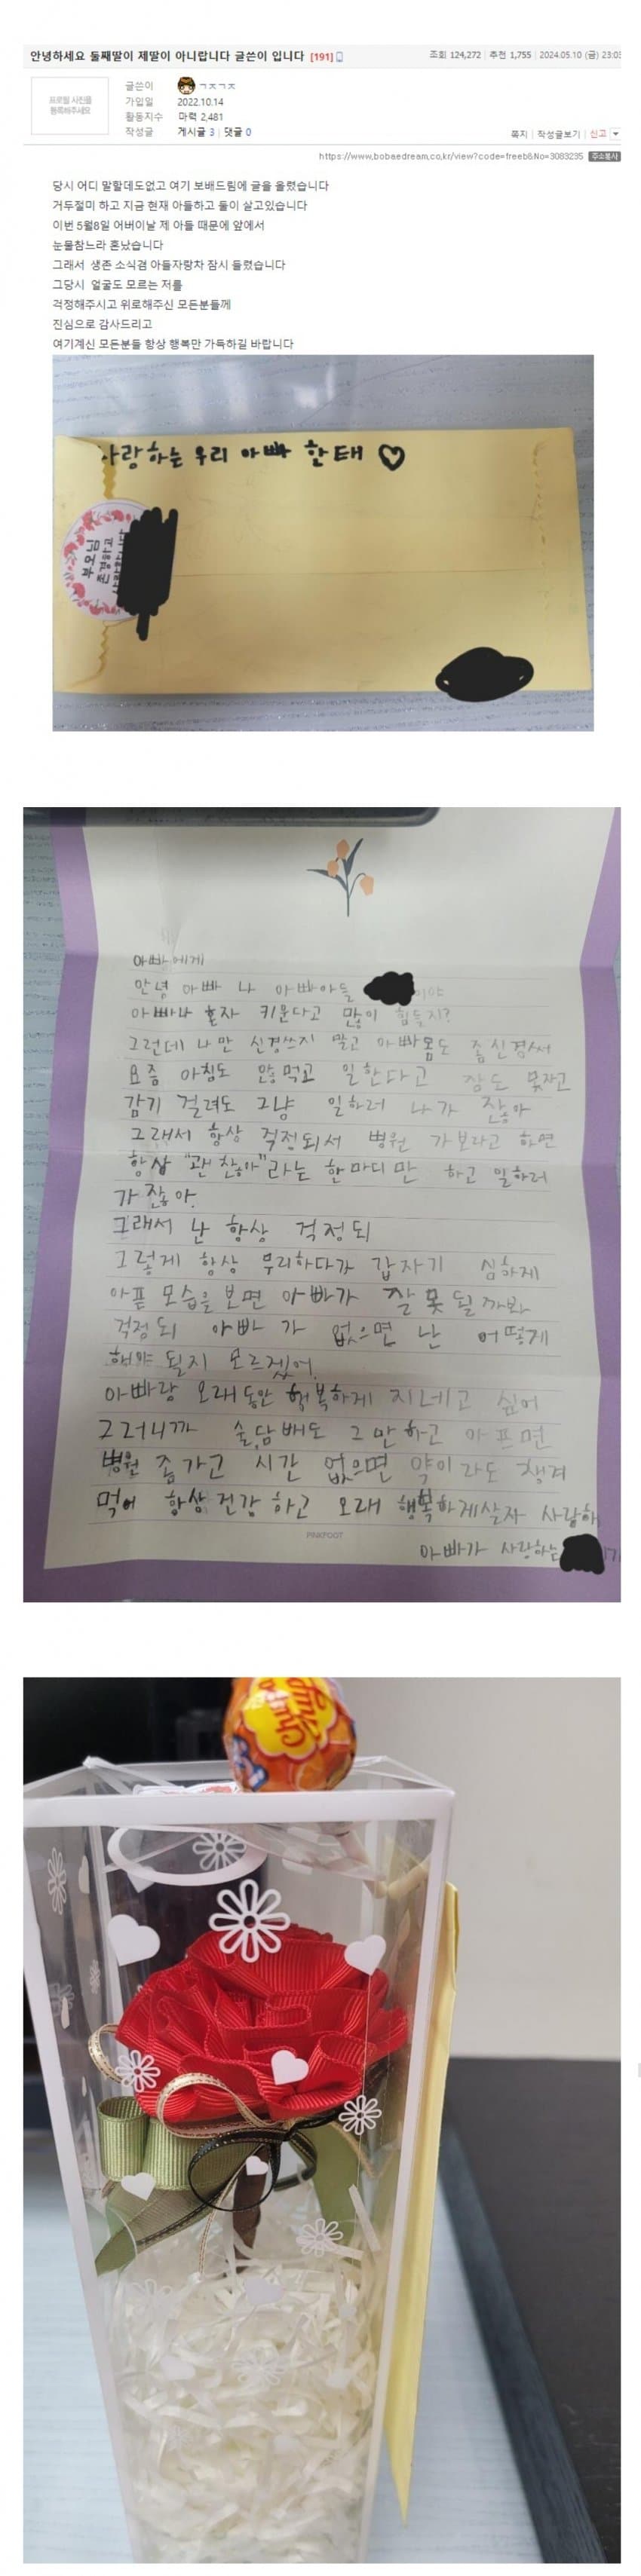 안녕하세요 둘째딸이 제딸이 아니랍니다 글쓴이 입니다 [191]
조회 124,272 | 추천 1,755 | 2024.05.10 (금) 23:0
프로필 사진를
등록해주세요
글쓴이 ㄱㅈㄱㅈ
가입일 2022.10.14
활동지수 마력 2,481
작성글 게시글 3 | 댓글 0
쪽지 | 작성글보기 | 신고
https://www.bobaedream.co.kr/view?code=freeb&No=3083235 주소복사
당시 어디 말할데도없고 여기 보배드림에 글을 올렸습니다
거두절미 하고 지금 현재 아들하고 둘이 살고있습니다
이번 5월8일 어버이날 제 아들 때문에 앞에서
눈물참느라 혼났습니다
그래서 생존 소식겸 아들자랑차 잠시 들렸습니다
그당시 얼굴도 모르는 저를
걱정해주시고 위로해주신 모든분들께
진심으로 감사드리고
여기계신 모든분들 항상 행복만 가득하길 바랍니다
사랑하는 우리 아빠 한태 ♡
부모님
존경하고
아빠에게
안녕 아빠 나 아빠아들 이야
아빠나 혼자 키운다고 많이 힘들지?
그런데 나만 신경쓰지 말고 아빠몸도 좀신경써
요즘 아침도 않먹고 일한다고 잠도 못자고
감기 걸려도 그냥 일하러 나가 잖아
그래서 항상 걱정되서 병원 가보라고 하면
항상 "괜찬아"라는 한마디만 하고 일하러
가잖아.
그래서 난 항상 걱정되
그렇게 항상 무리하다가 갑자기 심하게
아픈 모습을 보면 아빠가 잘못될까봐
걱정되 아빠가 없으면 난 어떻게
해야 될지 모르겠어.
아빠랑 오래동안 행복하게 지네고 싶어
그러니까 술,담배도 그만하고 아프면
병원 좀가고 시간 없으면 약이라도 챙겨
먹어 항상건강하고 오래 행복하게살자 사랑해
PAKFOOT
아빠가 사랑하는
Chupa
Chups